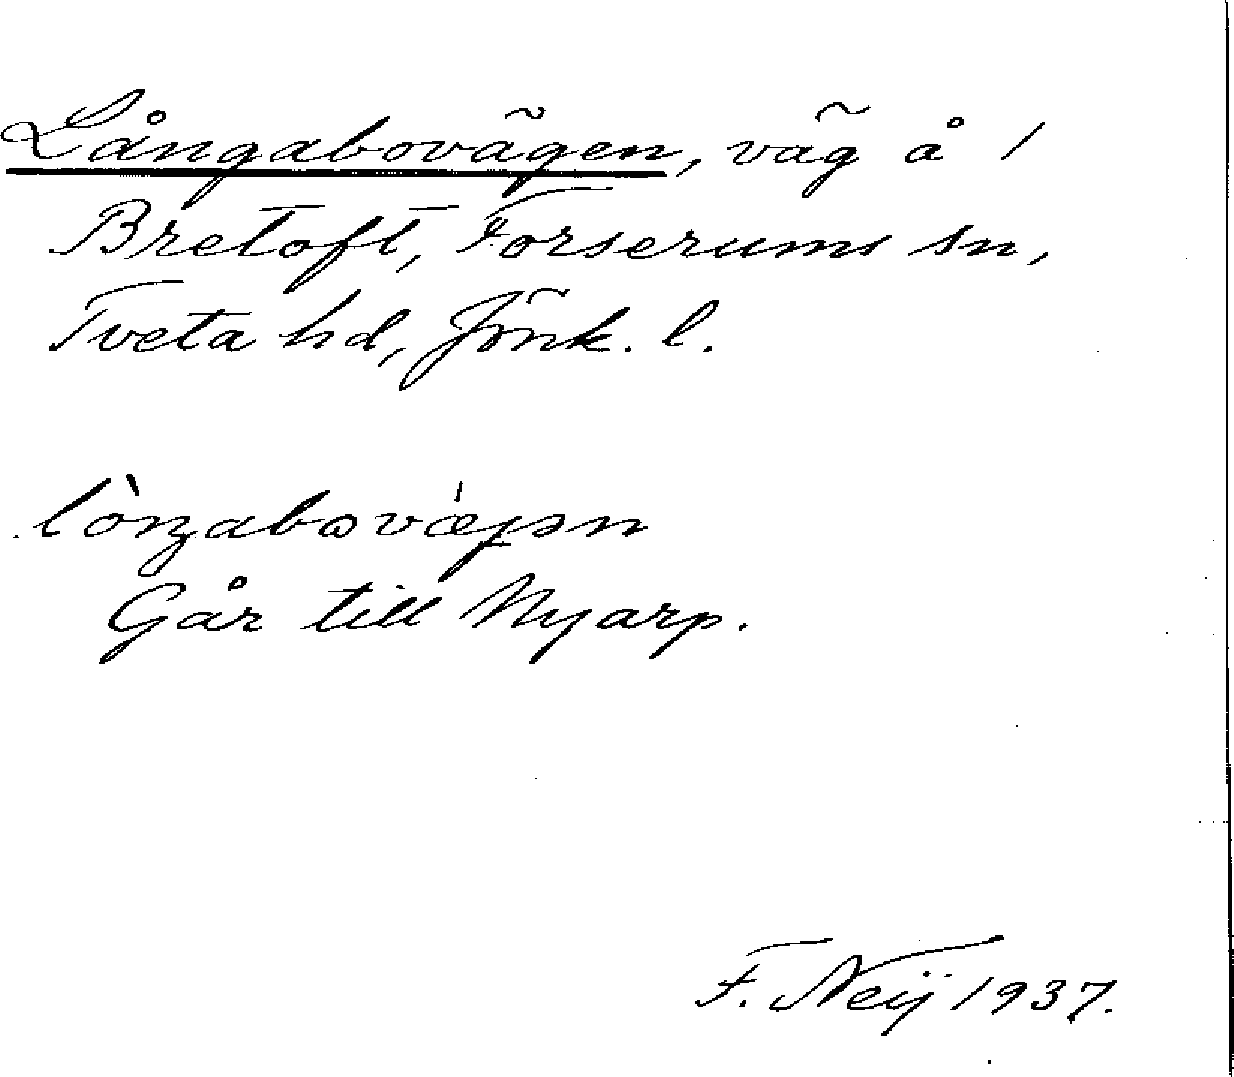 Långabovägen, väg å 1
Bretoft, Forserums sn,
Tveta hd, Jönk. l.
lòŋabωvǽjən
Går till Nyarp.
F. Neij 1937.